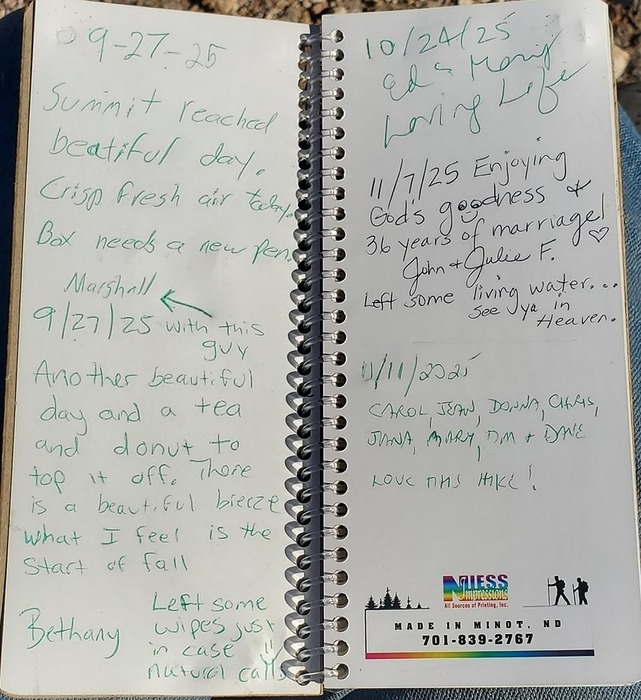 9-27-25
Summit reached
beatiful day.
Crisp fresh air today.
Box needs a new pen.
Marshall
9/27/25 with this
guy
Another beautiful
day and a tea
and donut to
top it off. There
is a beautiful bierze
what I feel is the
Start of fall
Bethany
Left some
wipes just
in case
natural calls
10/24/25
Ed & Mary
Loving Life
11/7/25 Enjoying
God's goodness &
36 years of marriage!
John + Julie F. ♡
Left some living water...
See ya in
Heaven.
11/11/2025
CAROL, JEAN, DONNA, CHRIS,
JANA, MARY, JIM + DAVE
LOVE THIS HIKE!
NIESS
Impressions
All Sources of Printing, Inc.
MADE IN MINOT, ND
701-839-2767